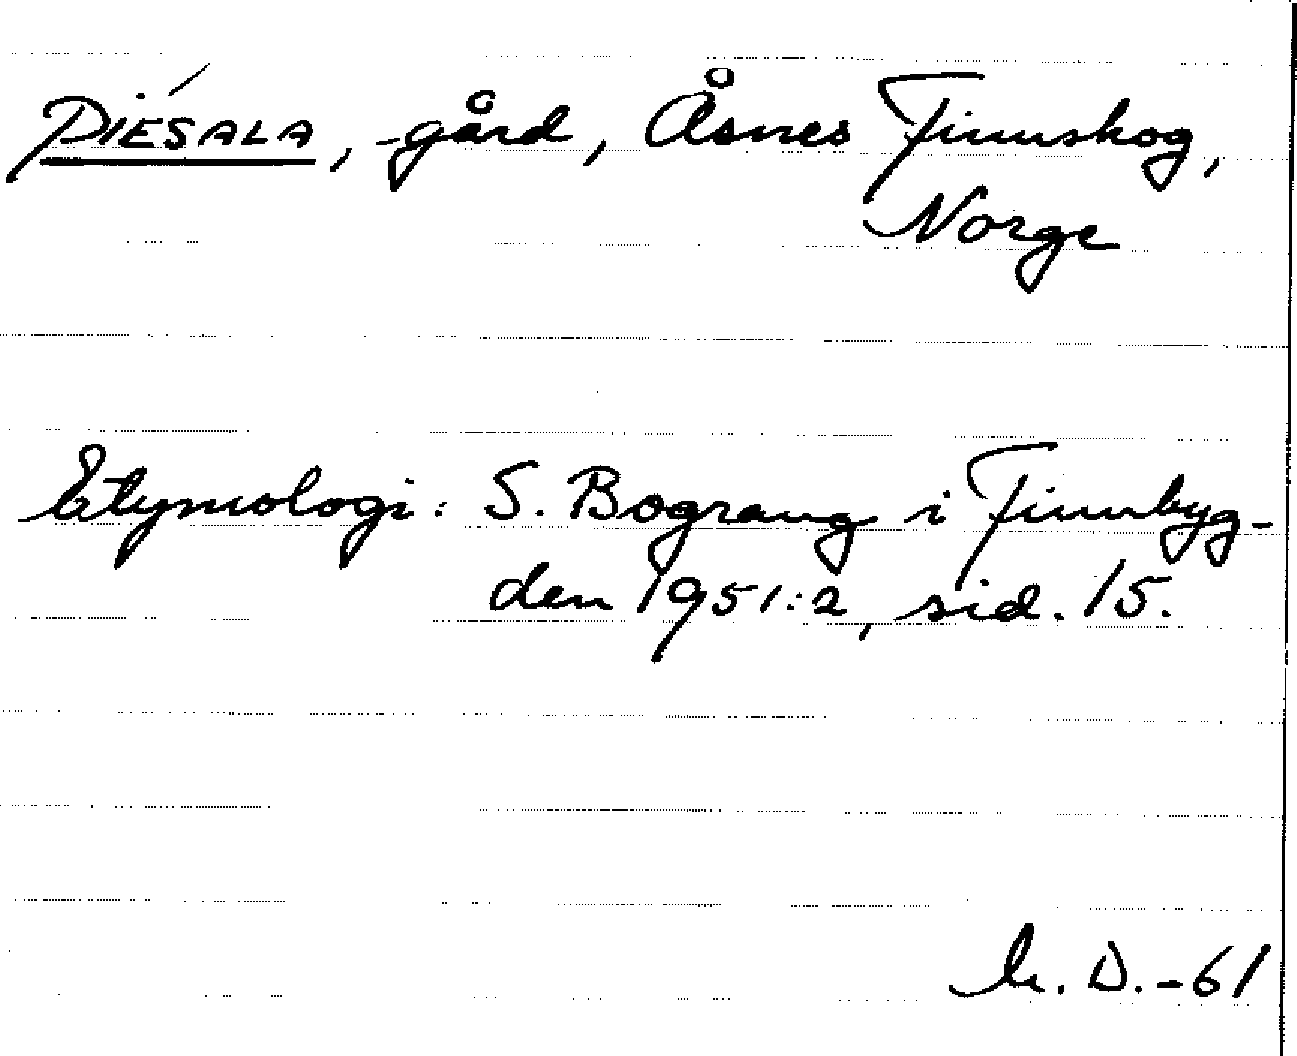 PIÉSALA, gård, Åsnes Finnskog,
Norge
Etymologi: S. Bograng i Finnbyg-
den 1951:2, sid. 15.
D.-61